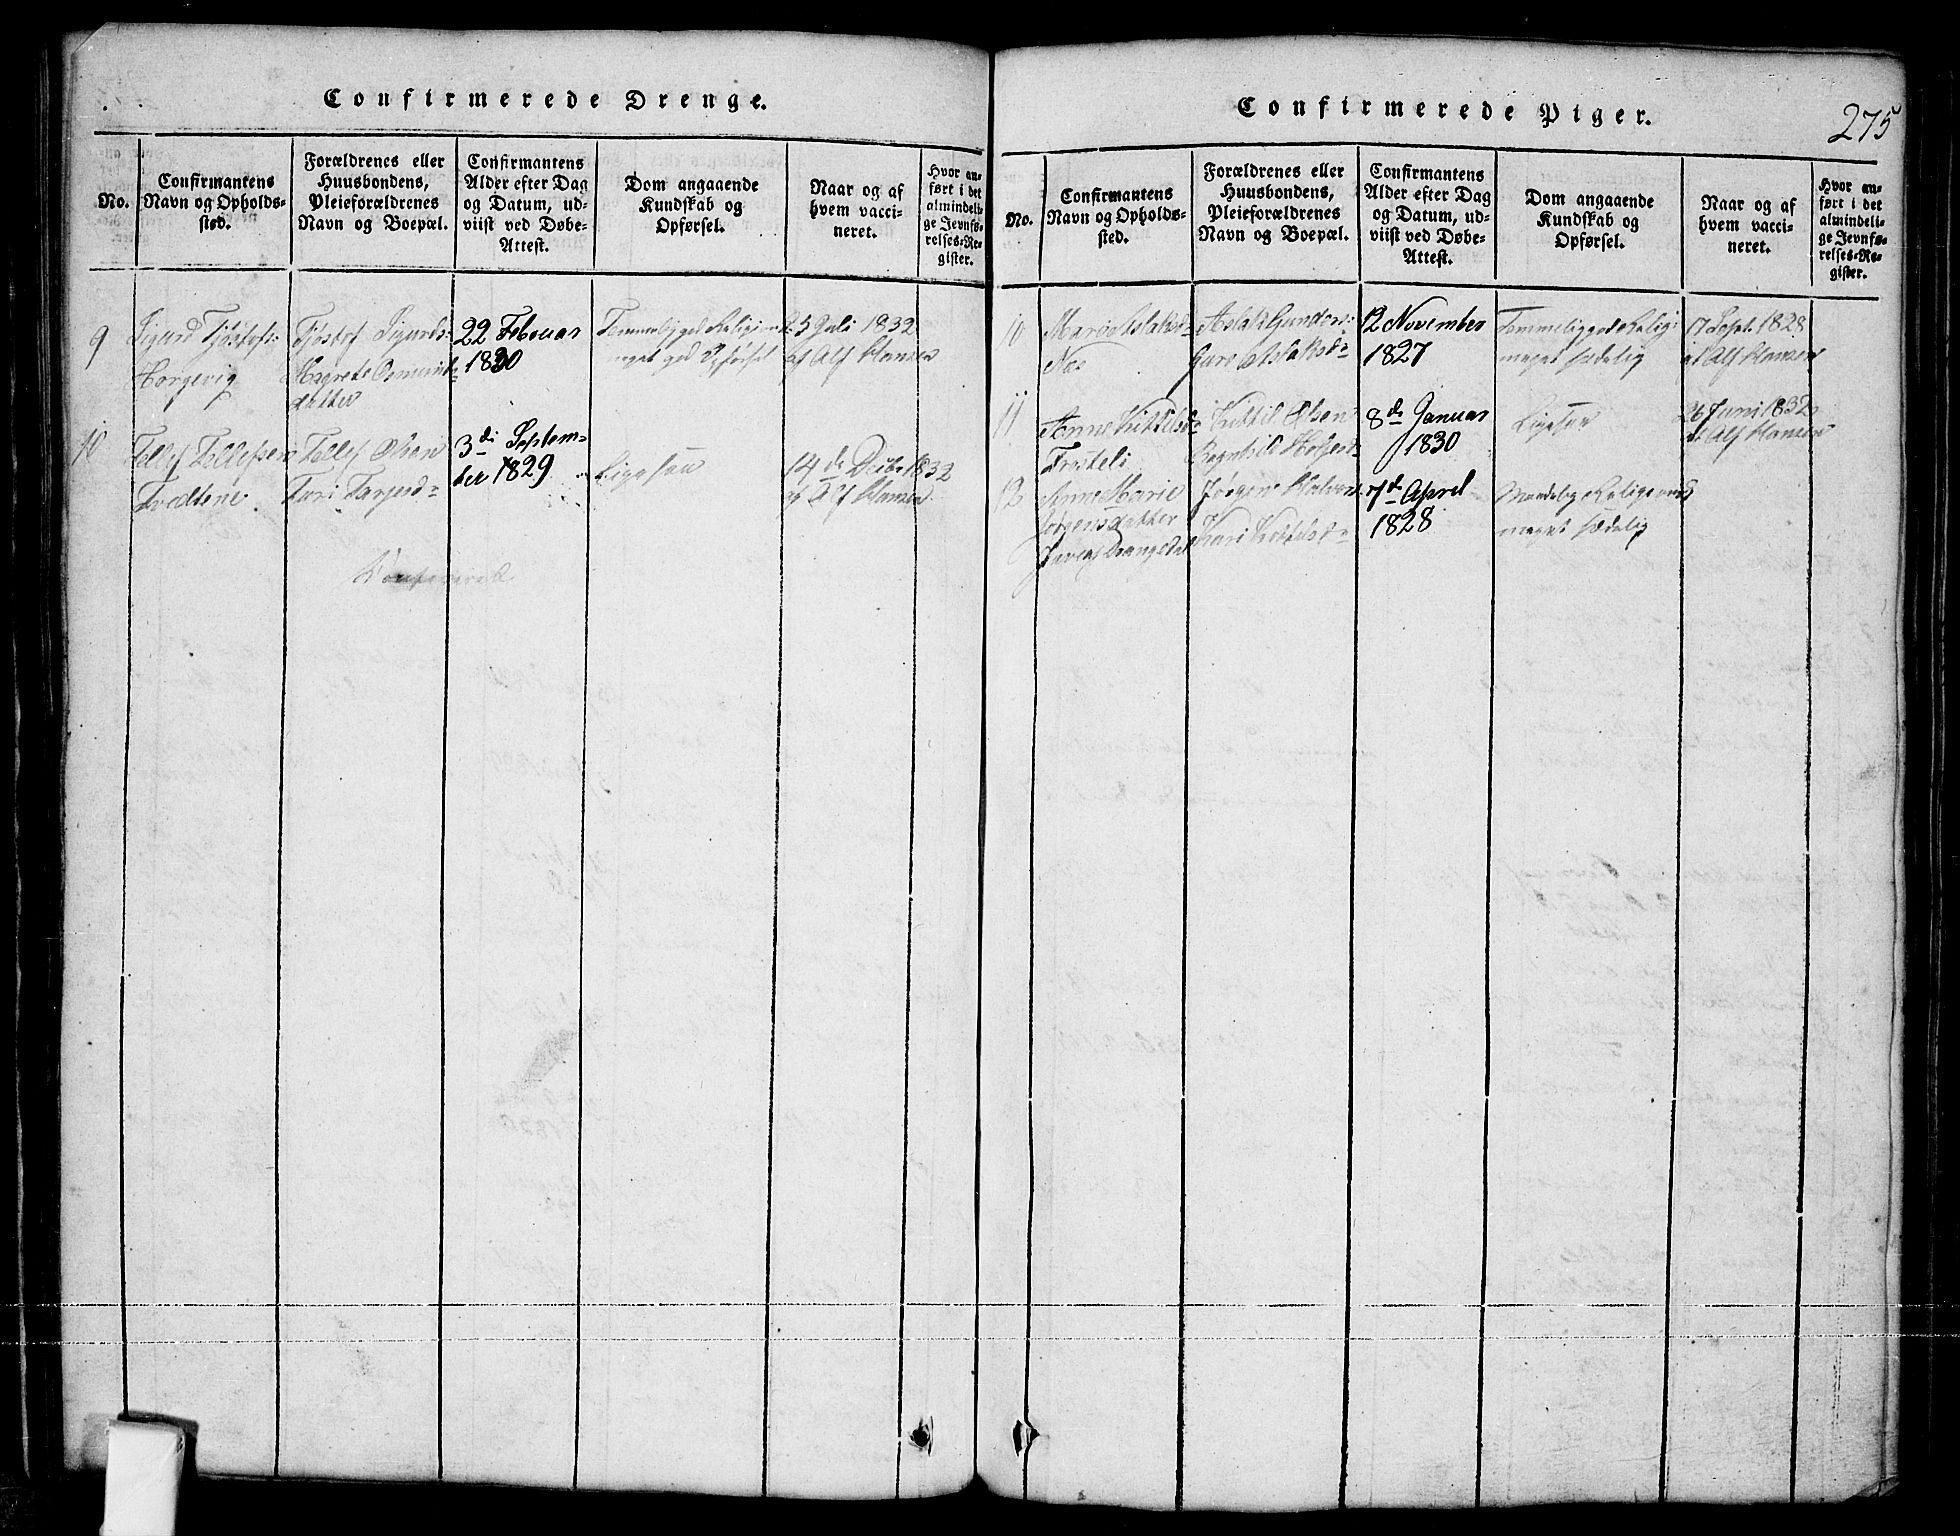 Confirmerede Drenge.
No.
Confirmantens
Navn og Opholds-
sted.
Forældrenes eller
Huusbondens,
Pleieforældrenes
Navn og Boepæl.
Confirmantens
Alder efter Dag
og Datum, ud-
viist ved Døbe-
Attest.
Dom angaaende
Kundskab og
Opførsel.
Naar og af
hvem vacci-
neret.
Hvor an-
ført i det
almindeli-
ge Jevnfø-
relses-Re-
gister.
9
Sigurd Tjøstofs:
Horgevig
Tjøstof Sigurds:
Magrete Osmund
datter
22 Februar
1830
meget god Opførsel
5 Juli 1832
af Alf Hansen
10
Tellef Tellefsen
Tvedtene
Tellef Olsen
Turi Tarjersd
3di Septem-
ber 1829
Ligesaa
14de Decbr 1832
af Alf Hansen
Confirmerede Piger.
275
No.
Confirmantens
Navn og Opholds-
sted.
Forældrenes eller
Huusbondens,
Pleieforældrenes
Navn og Boepæl.
Confirmantens
Alder efter Dag
og Datum, ud-
viist ved Døbe-
Attest.
Dom angaaende
Kundskab og
Opførsel.
Naar og af
hvem vacci-
neret.
Hvor an-
ført i det
almindeli-
ge Jevnfø-
relses-Re-
gister.
10
Næs
Aslak Gunders:
Guro Aslaksd
12 November
1827
meget sædelig
17 Sept. 1828
af Alf Hansen
11
Anne Kittelsd
Kittil Olsen
8de Januar
1830
Ligesaa
26 Juni 1832
af Alf Hansen
12
Anne Marie
Jørgensdatter
Jørgen Halvors
Kari Kittelsd
7de April
1828
meget sædelig